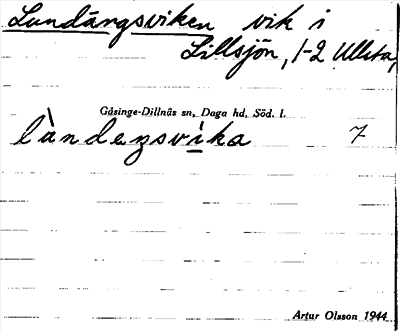 Lundängsviken vik i
Lillsjön, 1-2 Ullsta,
Gåsinge-Dillnäs sn, Daga hd, Söd. l.
làndenzsvika 7
Artur Olsson 1944